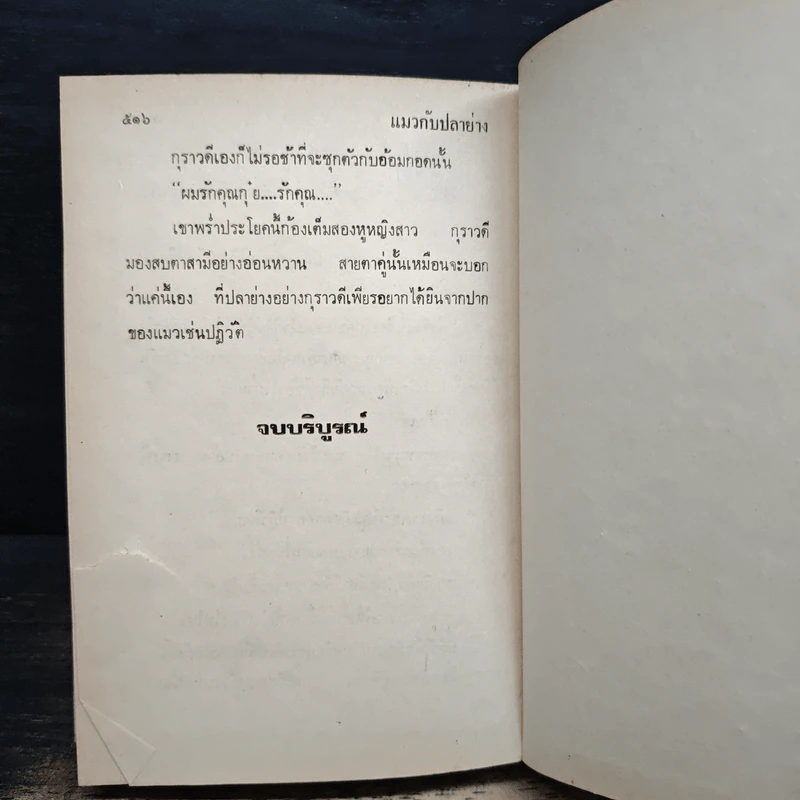 ๕๑๖ แมวกับปลาย่าง
กุราวดีเองก็ไม่รอช้าที่จะซุกตัวกับอ้อมกอดนั้น
“ผมรักคุณกุ๋ย....รักคุณ....”
เขาพร่ำประโยคนี้ก้องเต็มสองหูหญิงสาว กุราวดี
มองสบตาสามีอย่างอ่อนหวาน สายตาคู่นั้นเหมือนจะบอก
ว่าแค่นี้เอง ที่ปลาย่างอย่างกุราวดีเพียรอยากได้ยินจากปาก
ของแมวเช่นปฏิวัติ
จบบริบูรณ์